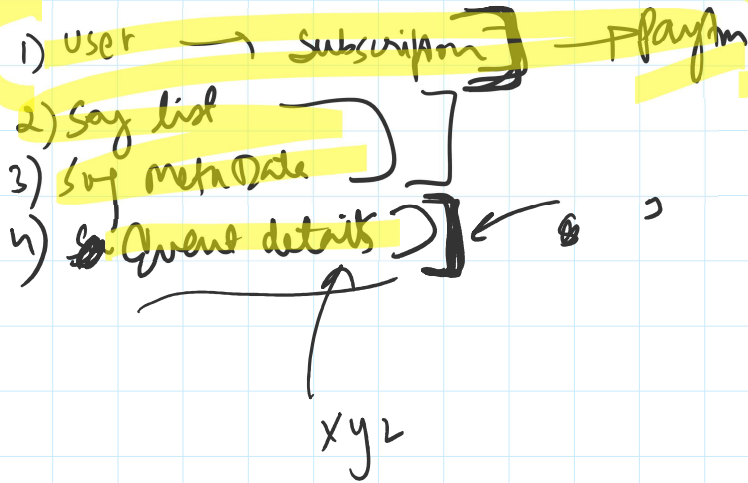 1) User → Subscription → Paym
2) Song list
3) Song MetaData
4) details
xyz